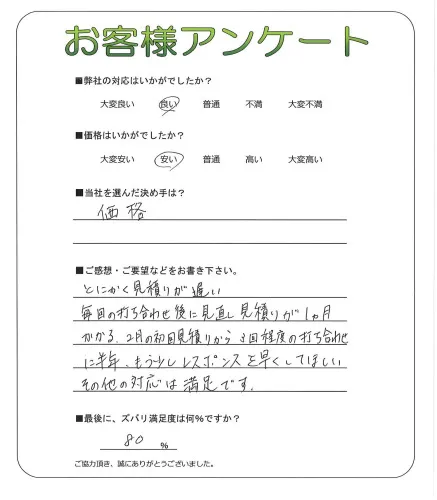 お客様アンケート
■弊社の対応はいかがでしたか？
大変良い 良い 普通 不満 大変不満
■価格はいかがでしたか？
大変安い 安い 普通 高い 大変高い
■当社を選んだ決め手は？
価格
■ご感想・ご要望などをお書き下さい。
とにかく見積りが遅い
毎回の打ち合わせ後に見直し見積りが1ヵ月
かかる。2月の初回見積りから3回程度の打ち合わせ
に半年、もう少しレスポンスを早くしてほしい
その他の対応は満足です。
■最後に、ズバリ満足度は何％ですか？
80 %
ご協力頂き、誠にありがとうございました。